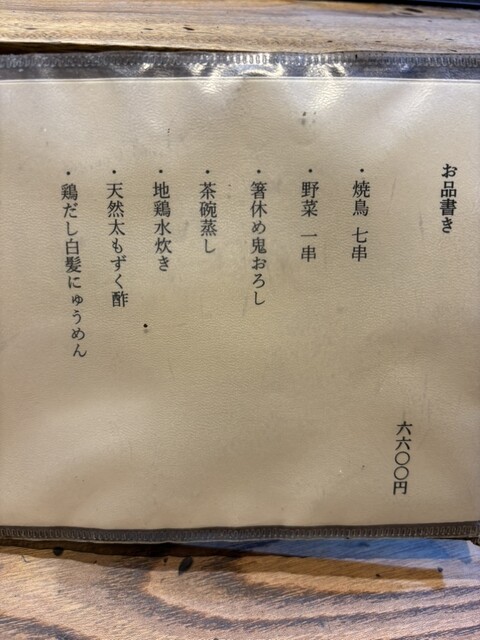 お品書き
六六〇〇円
・焼鳥 七串
・野菜 一串
・箸休め鬼おろし
・茶碗蒸し
・地鶏水炊き
・天然太もずく酢
・鶏だし白髪にゅうめん